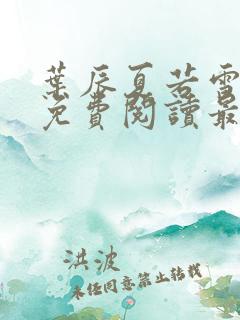 葉辰夏若雪
免費閱讀最
洪波
未經同意禁止轉載